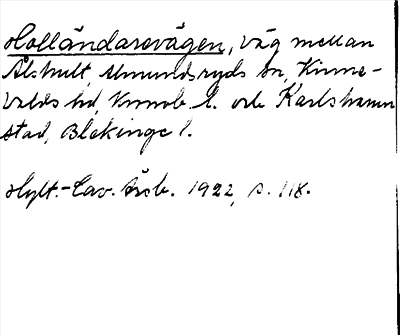 Holländarevägen, väg mellan
Älshult, Almundsryds sn, Kinne-
valds hd, Kronob. l. och Karlshamn
stad, Blekinge l.
Hylt.-Cav. Årsb. 1922, s. 118.